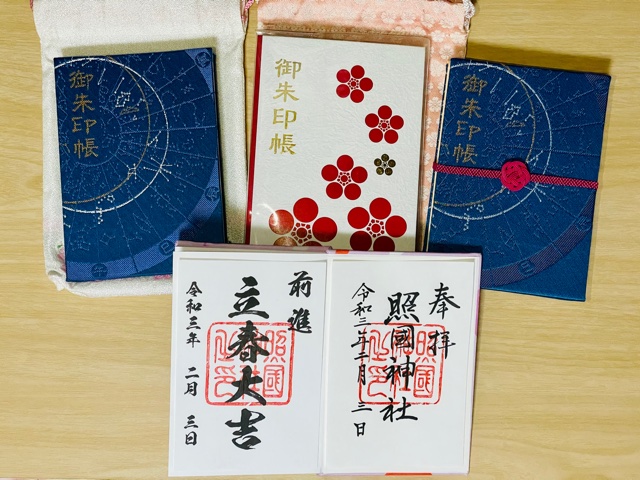 御朱印帳
御朱印帳
御朱印帳
奉拝
照國神社
令和三年二月三日
前進
立春大吉
令和三年 二月 三日